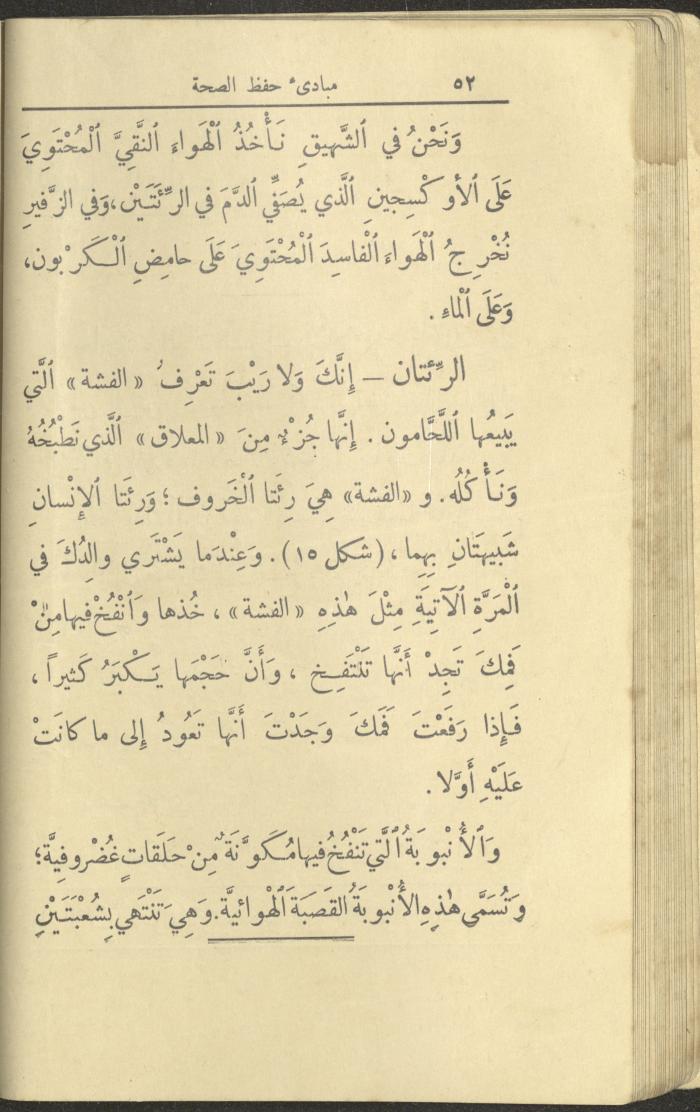 ٥٢ مبادىء حفظ الصحة
وَنَحْنُ في ٱلشَّهيقِ نَأْخُذُ ٱلْهَواءَ ٱلنَّقِيَّ ٱلْمُحْتَوِيَ
عَلَى ٱلأوكْسِجينِ ٱلَّذي يُصَفِّي ٱلدَّمَ في الرِّئَتَيْن، وَفي الزَّفيرِ
نُخْرِجُ ٱلْهَواءَ ٱلْفاسِدَ ٱلْمُحْتَوِيَ عَلَى حامِضِ ٱلْكَرْبون،
وَعَلَى ٱلْماءِ.
الرِّئتان – إِنَّكَ وَلا رَيْبَ تَعْرِفُ «الفشة» ٱلَّتي
يَبيعُها ٱللَّحَّامون. إِنَّها جُزْءٌ مِنَ «المعلاق» ٱلَّذي نَطْبُخُهُ
وَنَأْكُلُه. و «الفشة» هِيَ رِئَتا ٱلْخَروف؛ وَرِئَتا ٱلإنْسانِ
شَبيهَتَانِ بِهِما، (شكل ١٥). وَعِنْدَما يَشْتَري والِدُكَ في
ٱلْمَرَّةِ ٱلآتِيَةِ مِثْلَ هٰذِهِ «الفشة»، خُذها وَٱنْفُخْ فيها مِنْ
فَمِكَ تَجِدْ أَنَّها تَنْتَفِخ، وَأَنَّ حَجْمَها يَكْبَرُ كَثيراً،
فَإِذا رَفَعْتَ فَمَكَ وَجَدْتَ أَنَّها تَعُودُ إِلى ما كانَتْ
عَلَيْهِ أَوَّلا.
وَٱلأُنْبوبَةُ ٱلَّتي تَنْفُخُ فيها مُكَوَّنَةٌ مِنْ حَلَقاتٍ غُضْروفِيَّة؛
وَتُسَمَّى هٰذِهِ الأُنْبوبَةُ القَصَبَةَ ٱلْهَوائيَّة. وَهِيَ تَنْتَهي بِشُعْبَتَيْنِ